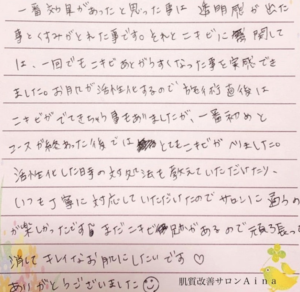 一番効果があったと思った事は 透明感が出た
事とくすみがとれた事です。それとニキビに関して
は、一回でもニキビあとがうすくなった事を実感でき
ました。お肌が活性化するので お手入れ直後は
ニキビがでてきちゃう事もありましたが、一番初めと
コースが終わった後では とてもニキビがへりました。
活性化した時の対処法を教えていただいたり、
いつも丁寧に対応していただいたのでサロンに通うの
が楽しかったです まだニキビ跡があるので頑張って
消してキレイなお肌にしたいです♡
ありがとうございました
肌質改善サロンAina